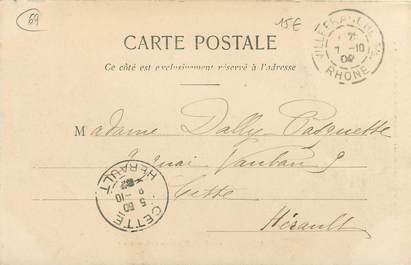 69
15E
CARTE POSTALE
Ce côté est exclusivement réservé à l'adresse
VILLEFRANCHE
7 -10
RHONE
Madame Dolly Pasquette
Quai Vauban 9
Cette
Hérault
CETTE
5 50
8 -10
02
HERAULT